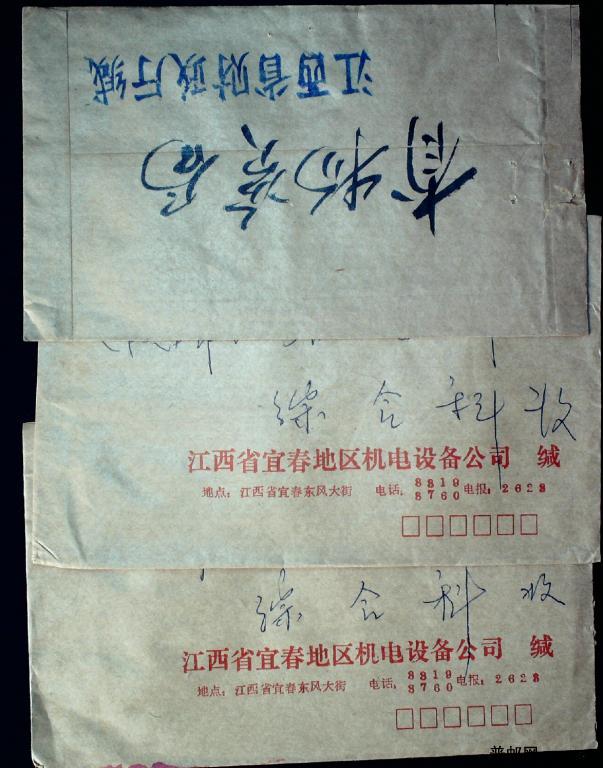 江西省财政厅缄
省物资局
综合科 收
江西省宜春地区机电设备公司 缄
地点：江西省宜春东风大街 电话：8819 8760 电报：2628
综合科 收
江西省宜春地区机电设备公司 缄
地点：江西省宜春东风大街 电话：8819 8760 电报：2628
普邮网